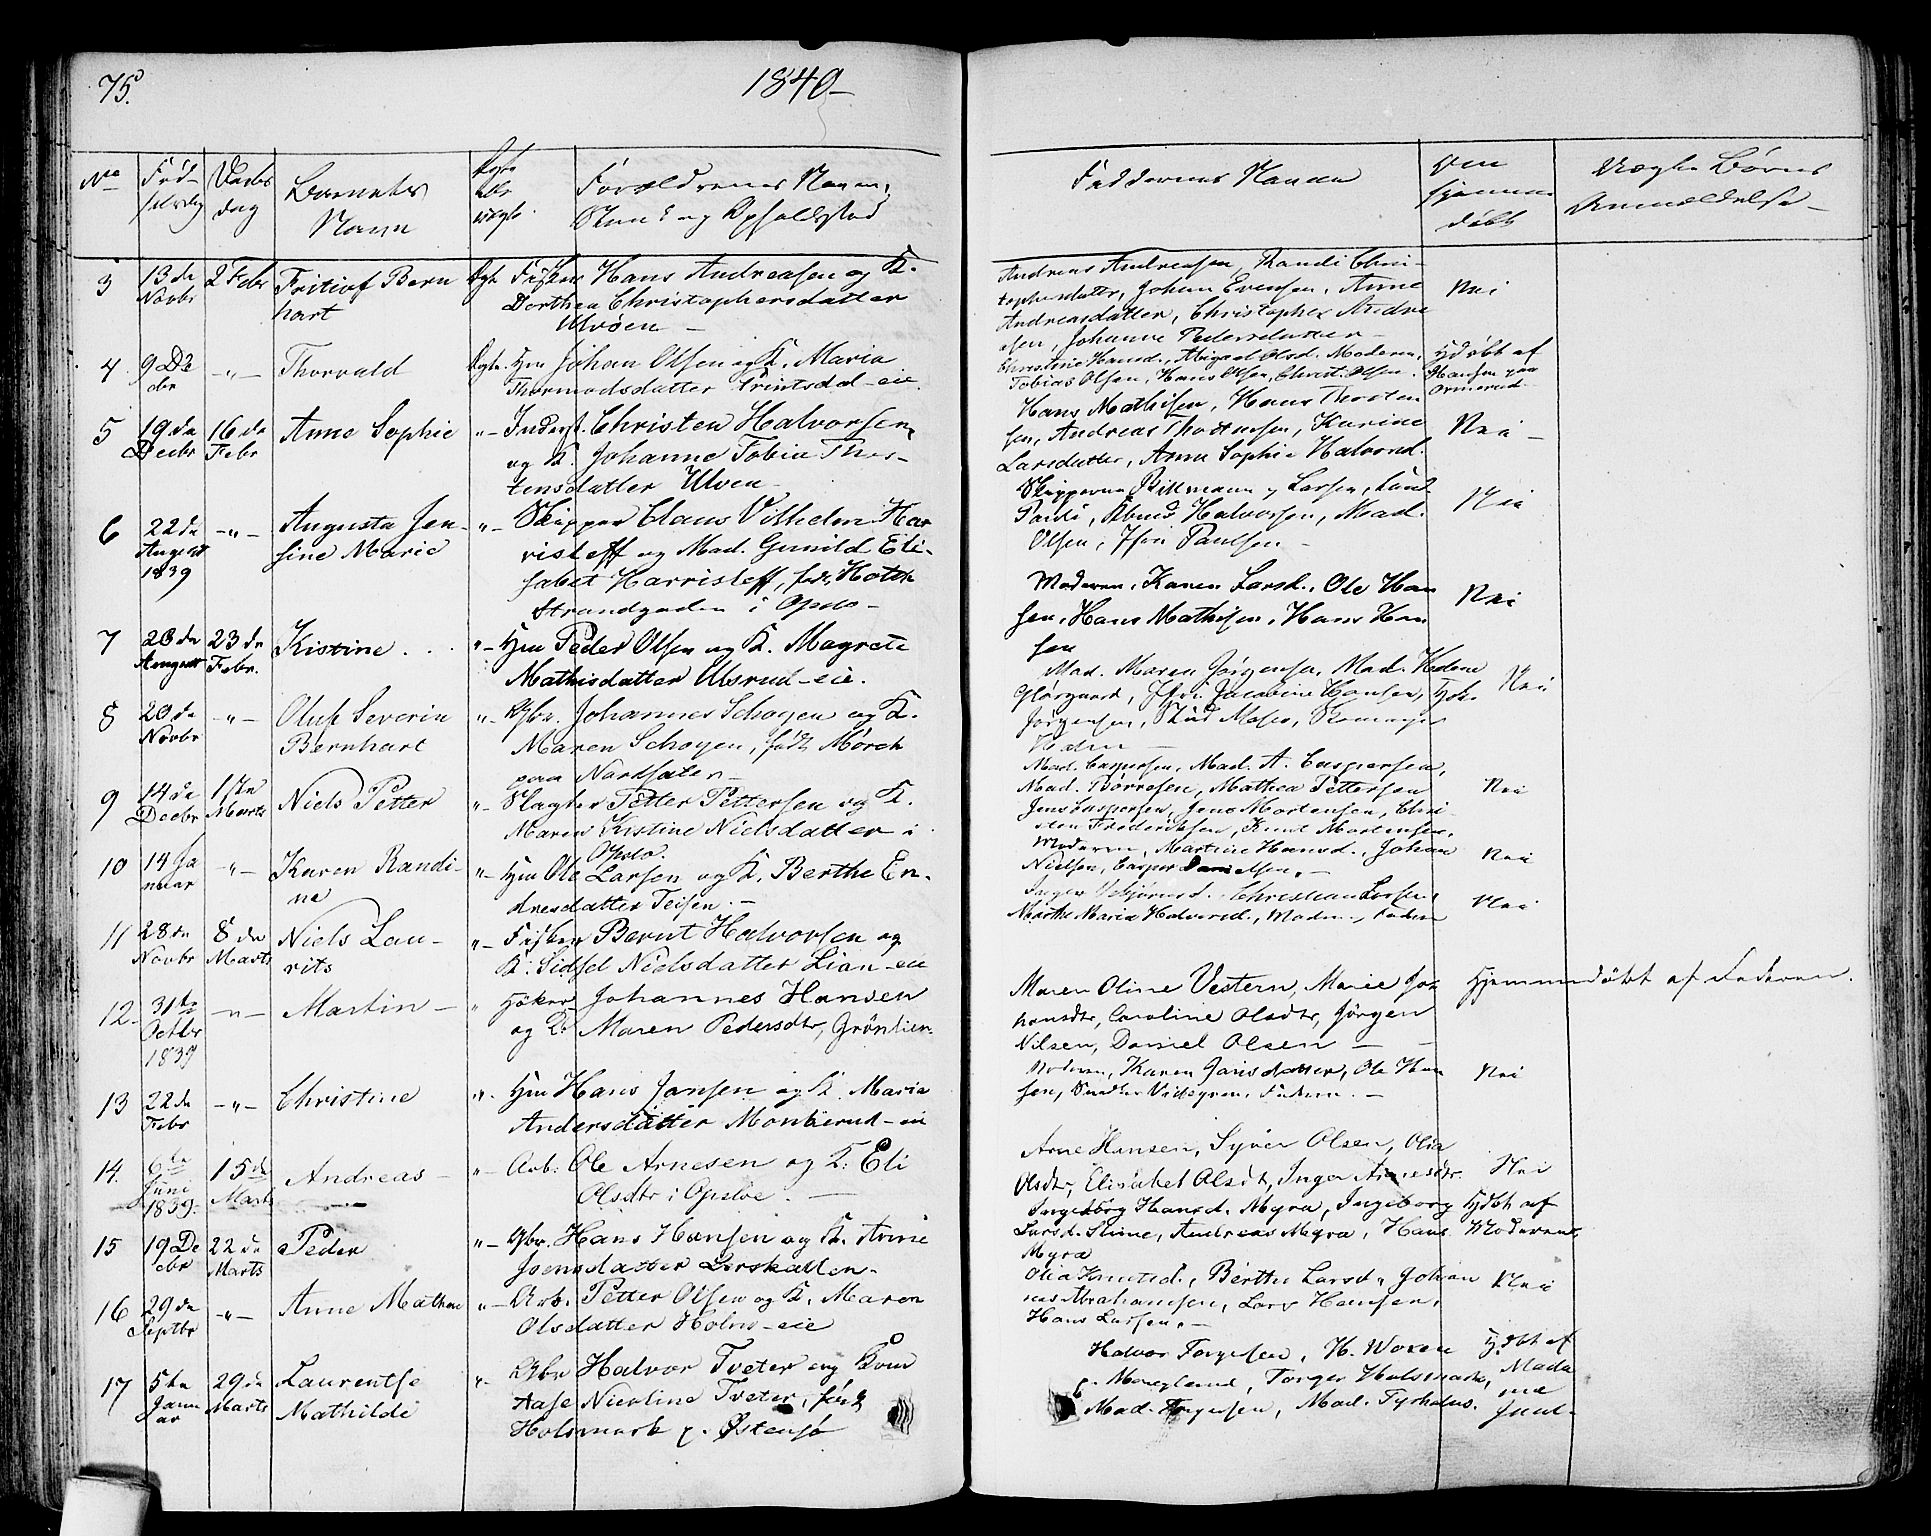 75.
1840 –
No
Fød-
selsdag
Daabs
dag
Barnets
Navn
Ægte
eller
uægte.
Forældrenes Navn,
Stand og Opholdsted
Faddernes Navne
Om
hjemme
døbt
Uægte Børns
Anmeldelse –
3 13 de Novbr 2 Febr Fritiof Bern
hart
Ægt. Fisker Hans Andreasen og K.
Dorthea Christophersdatter
Ulvøen –
Andreas Andreasen, Randi Chri-
stophersdatter, Johan Evensen, Anne
Andreasdatter, Christopher Andre
sen, Johanne Pedersdatter –
Nei
4 9 De
cbr -"- Thorvald
Ægte. Hm Johan Olsen og K. Maria
Thormodsdatter Grintsdal-eie.
Christine Hansd., Abigael Olsd. Moderen,
Tobias Olsen, Hans Olsen, Christ. Olsen.
Hjdøbt af
Hansen paa
Ormerud
5 19 de Decbr 16 de Febr Anne Sophie
"- Inderst. Christen Halvorsen
og K. Johanne Tobia Thor-
tensdatter Ulven –
Hans Mathisen, Hans Thorsten
sen, Andreas Thostensen, Karine
Larsdatter, Anna Sophie Halvorsd.
Nei –
6 22 de August 1839 -"- Augusta Jen-
sine Marie
"- Skipper Claus Vilhelm Har
risleff og Mad. Gunild Eli-
sabet Harrisleff, født Holck
Strandgaden i Opslo –
Skipperne Billmann og Larsen,
Halvorsen, Mad.
Olsen, Jfr. Paulsen –
Nei
7 20 de August 23 de Febr. Kistine . .
"- Hm Peder Olsen og K. Magrete
Mathisdatter Ulsrud-eie.
Moderen, Karen Larsd., Ole Han
sen, Hans Mathisen, Hans Han
sen
Nei
8 20 de Novbr -"- Oluf Severin
Bernhart
"- Gbr. Johannes Schøyen og K.
Maren Schøyen, født Mørch
paa Nordsæter –
Mad. Maren Jørgensen, Mad. Helene
Glørgaard, Jfr. Jacobine Hansen, Hjk.
Jørgensen, Stud Moses,
Nei
9 14 de Decbr 1ste Marts Niels Petter
"- Slagter Petter Pettersen og K.
Maren Kistine Nielsdatter i
Opslo.
Mad. Caspersen, Mad. A. Caspersen,
Mad. Børresen, Mathea Pettersen
Jens Caspersen, Jens Mortensen, Chri-
sten Frederiksen, Knut Mortensen.
Nei
10 14 Ja
nuar -"- Karen Randi-
ne
"- Hm Ole Larsen og K. Berthe En-
dresdatter Teisen. –
Moderen, Martine Hansd., Johan
Nielsen, Casper Danielsen. –
Nei
11 28 de Novbr 8 de Marts Niels Lau-
rits
"- Fisker Bernt Halvorsen og
K. Sidsel Nielsdatter Lian-eie
Inger Christian Larsen,
Marthe Maria Halvorsd., Moderen, Faderen
Nei
12 31te Octbr 1839 -"- Martin –
" Høker Johannes Hansen
og K: Maren Pedersdtr, Grønlien.
Maren Oline Vestern, Marie Jo-
hansdtr, Caroline Olsdtr, Jørgen
Nilsen, Daniel Olsen – –
Hjemmedøbt af Faderen.
13 22 de Febr -"- Christine
"- Hm Hans Jansen og K. Maria
Andersdatter Monkerud-eie
Moderen, Karen Jansdatter, Ole Han
sen, Faderen. –
Nei
14. 6te Juni 1839. 15 de Marts Andreas –
"- Arb: Ole Arnesen og K: Eli
Olsdtr i Opsloe. –
Arne Hansen, Syver Olsen, Olia
Olsdtr, Elisabet Olsdt, Inger Arnesdtr.
Nei
15 19 De
cbr 22 de Marts Peder
"- Gbr. Hans Hansen og K. Anne
Joensdatter Lerskallen.
Ingeborg Hansd. Myra, Ingeborg
Larsd. Stime, Andreas Myra, Hans
Myra
Hjdbt af
Moderens
16 29 de Septbr -"- Anne Mathea
"- Arb. Petter Olsen og K. Maren
Olsdatter Holm-eie
Olia Knutsd., Berthe Larsd., Johan
nes Abrahamsen, Lars Hansen,
Hans Larsen. –
Nei
17 5te Janu
ar 29 de Marts Laurentse
Mathilde
"- Gbr Halvor Tveter og Kone
Aase Nicoline Tveter, født
Holsmark p. Østensø
Halvor Torgersen, H. Woxen
p. Manglerud, Torger Holsmark,
Mad. Torgersen, Mad. Tyrholm.
Hjdbt af
Mada
me
Juul-